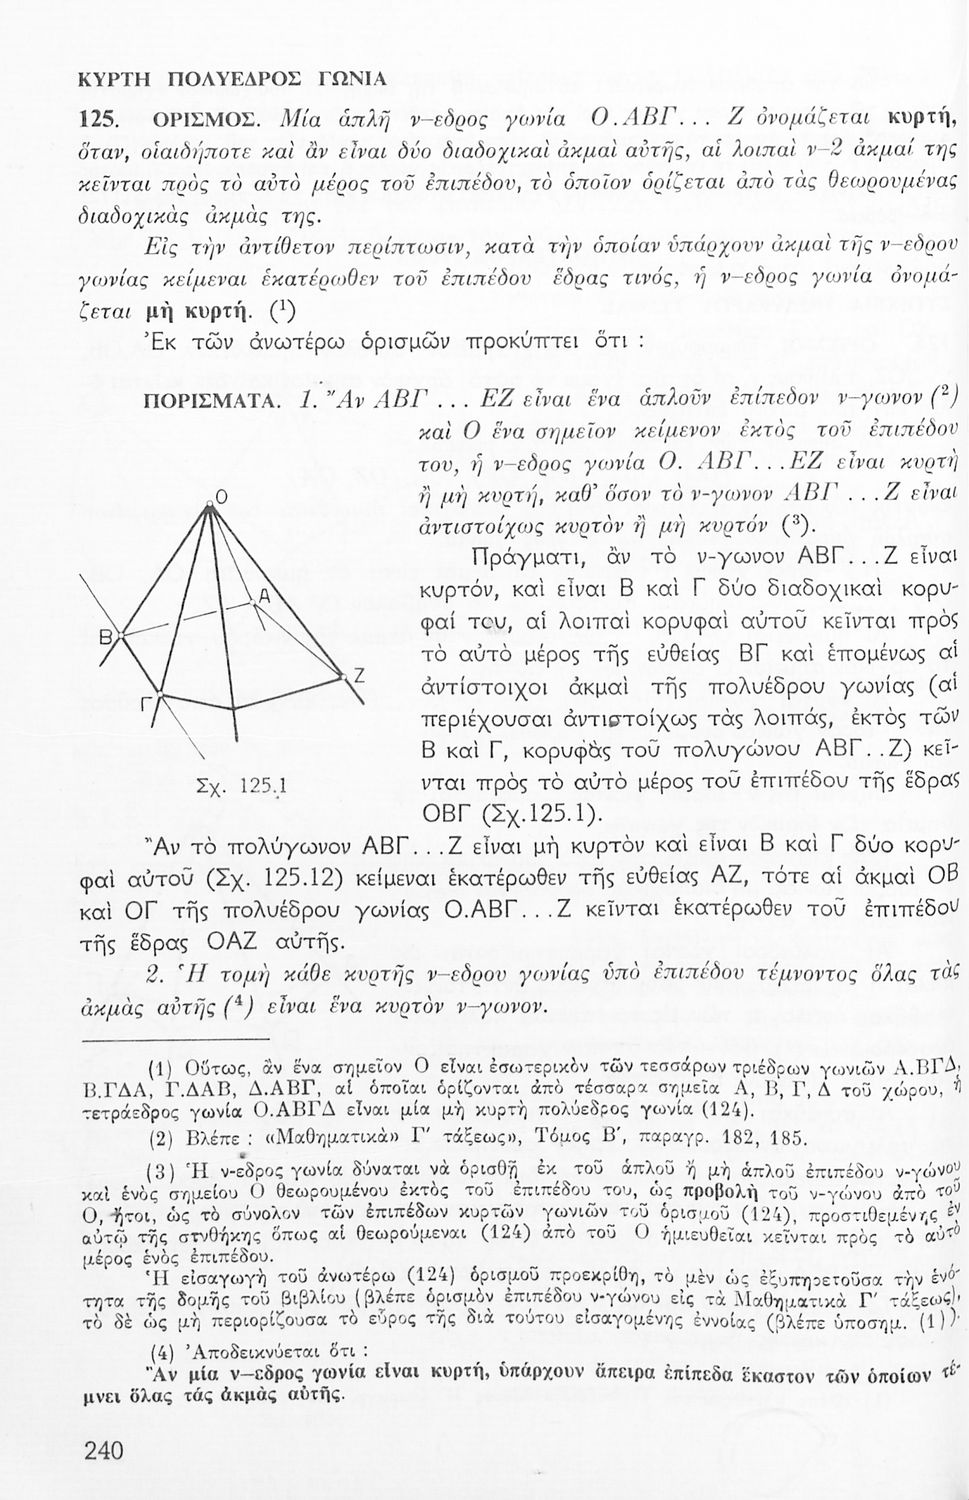 ΚΥΡΤΗ ΠΟΛΥΕΔΡΟΣ ΓΩΝΙΑ
125. ΟΡΙΣΜΟΣ. Μία ἁπλῆ ν–εδρος γωνία Ο.ΑΒΓ... Ζ ὀνομάζεται κυρτή,
ὅταν, οἱαιδήποτε καὶ ἂν εἶναι δύο διαδοχικαὶ ἀκμαὶ αὐτῆς, αἱ λοιπαὶ ν–2 ἀκμαί της
κεῖνται πρὸς τὸ αὐτὸ μέρος τοῦ ἐπιπέδου, τὸ ὁποῖον ὁρίζεται ἀπὸ τὰς θεωρουμένας
διαδοχικὰς ἀκμὰς της.
Εἰς τὴν ἀντίθετον περίπτωσιν, κατὰ τὴν ὁποίαν ὑπάρχουν ἀκμαὶ τῆς ν–εδρου
γωνίας κείμεναι ἑκατέρωθεν τοῦ ἐπιπέδου ἕδρας τινός, ἡ ν–εδρος γωνία ὀνομά-
ζεται μὴ κυρτή. (¹)
Ἐκ τῶν ἀνωτέρω ὁρισμῶν προκύπτει ὅτι :
ΠΟΡΙΣΜΑΤΑ. 1. Ἂν ΑΒΓ ... ΕΖ εἶναι ἕνα ἁπλοῦν ἐπίπεδον ν–γωνον (²)
καὶ Ο ἕνα σημεῖον κείμενον ἐκτὸς τοῦ ἐπιπέδου
του, ἡ ν–εδρος γωνία Ο. ΑΒΓ...ΕΖ εἶναι κυρτὴ
ἢ μὴ κυρτή, καθ' ὅσον τὸ ν-γωνον ΑΒΓ ...Ζ εἶναι
ἀντιστοίχως κυρτὸν ἢ μὴ κυρτόν (³).
Πράγματι, ἂν τὸ ν-γωνον ΑΒΓ...Ζ εἶναι
κυρτόν, καὶ εἶναι Β καὶ Γ δύο διαδοχικαὶ κορυ-
φαί του, αἱ λοιπαὶ κορυφαὶ αὐτοῦ κεῖνται πρὸς
τὸ αὐτὸ μέρος τῆς εὐθείας ΒΓ καὶ ἑπομένως αἱ
ἀντίστοιχοι ἀκμαὶ τῆς πολυέδρου γωνίας (αἱ
περιέχουσαι ἀντιστοίχως τὰς λοιπάς, ἐκτὸς τῶν
Β καὶ Γ, κορυφὰς τοῦ πολυγώνου ΑΒΓ..Ζ) κεῖ-
νται πρὸς τὸ αὐτὸ μέρος τοῦ ἐπιπέδου τῆς ἕδρας
ΟΒΓ (Σχ.125.1).
Ο
Α
Β
Ζ
Γ
Σχ. 125.1
Ἂν τὸ πολύγωνον ΑΒΓ...Ζ εἶναι μὴ κυρτὸν καὶ εἶναι Β καὶ Γ δύο κορυ-
φαὶ αὐτοῦ (Σχ. 125.12) κείμεναι ἑκατέρωθεν τῆς εὐθείας ΑΖ, τότε αἱ ἀκμαὶ ΟΒ
καὶ ΟΓ τῆς πολυέδρου γωνίας Ο.ΑΒΓ...Ζ κεῖνται ἑκατέρωθεν τοῦ ἐπιπέδου
τῆς ἕδρας ΟΑΖ αὐτῆς.
2. Ἡ τομὴ κάθε κυρτῆς ν–εδρου γωνίας ὑπὸ ἐπιπέδου τέμνοντος ὅλας τὰς
ἀκμὰς αὐτῆς (⁴) εἶναι ἕνα κυρτὸν ν–γωνον.
(1) Οὕτως, ἂν ἕνα σημεῖον Ο εἶναι ἐσωτερικὸν τῶν τεσσάρων τριέδρων γωνιῶν Α.ΒΓΔ,
Β.ΓΔΑ, Γ.ΔΑΒ, Δ.ΑΒΓ, αἱ ὁποῖαι ὁρίζονται ἀπὸ τέσσαρα σημεῖα Α, Β, Γ, Δ τοῦ χώρου, ἡ
τετράεδρος γωνία Ο.ΑΒΓΔ εἶναι μία μὴ κυρτὴ πολύεδρος γωνία (124).
(2) Βλέπε : «Μαθηματικὰ» Γ' τάξεως», Τόμος Β', παραγρ. 182, 185.
(3) Ἡ ν-εδρος γωνία δύναται νὰ ὁρισθῇ ἐκ τοῦ ἁπλοῦ ἢ μὴ ἁπλοῦ ἐπιπέδου ν-γώνου
καὶ ἑνὸς σημείου Ο θεωρουμένου ἐκτὸς τοῦ ἐπιπέδου του, ὡς προβολὴ τοῦ ν-γώνου ἀπὸ τοῦ
Ο, ἤτοι, ὡς τὸ σύνολον τῶν ἐπιπέδων κυρτῶν γωνιῶν τοῦ ὁρισμοῦ (124), προστιθεμένης ἐν
αὐτῷ τῆς συνθήκης ὅπως αἱ θεωρούμεναι (124) ἀπὸ τοῦ Ο ἡμιευθεῖαι κεῖνται πρὸς τὸ αὐτὸ
μέρος ἑνὸς ἐπιπέδου.
Ἡ εἰσαγωγὴ τοῦ ἀνωτέρω (124) ὁρισμοῦ προεκρίθη, τὸ μὲν ὡς ἐξυπηρετοῦσα τὴν ἑνό-
τητα τῆς δομῆς τοῦ βιβλίου (βλέπε ὁρισμὸν ἐπιπέδου ν-γώνου εἰς τὰ Μαθηματικὰ Γ' τάξεως),
τὸ δὲ ὡς μὴ περιορίζουσα τὸ εὖρος τῆς διὰ τούτου εἰσαγομένης ἐννοίας (βλέπε ὑποσημ. (1)).
(4) Ἀποδεικνύεται ὅτι :
Ἂν μία ν–εδρος γωνία εἶναι κυρτή, ὑπάρχουν ἄπειρα ἐπίπεδα ἕκαστον τῶν ὁποίων τέ-
μνει ὅλας τάς ἀκμὰς αὐτῆς.
240